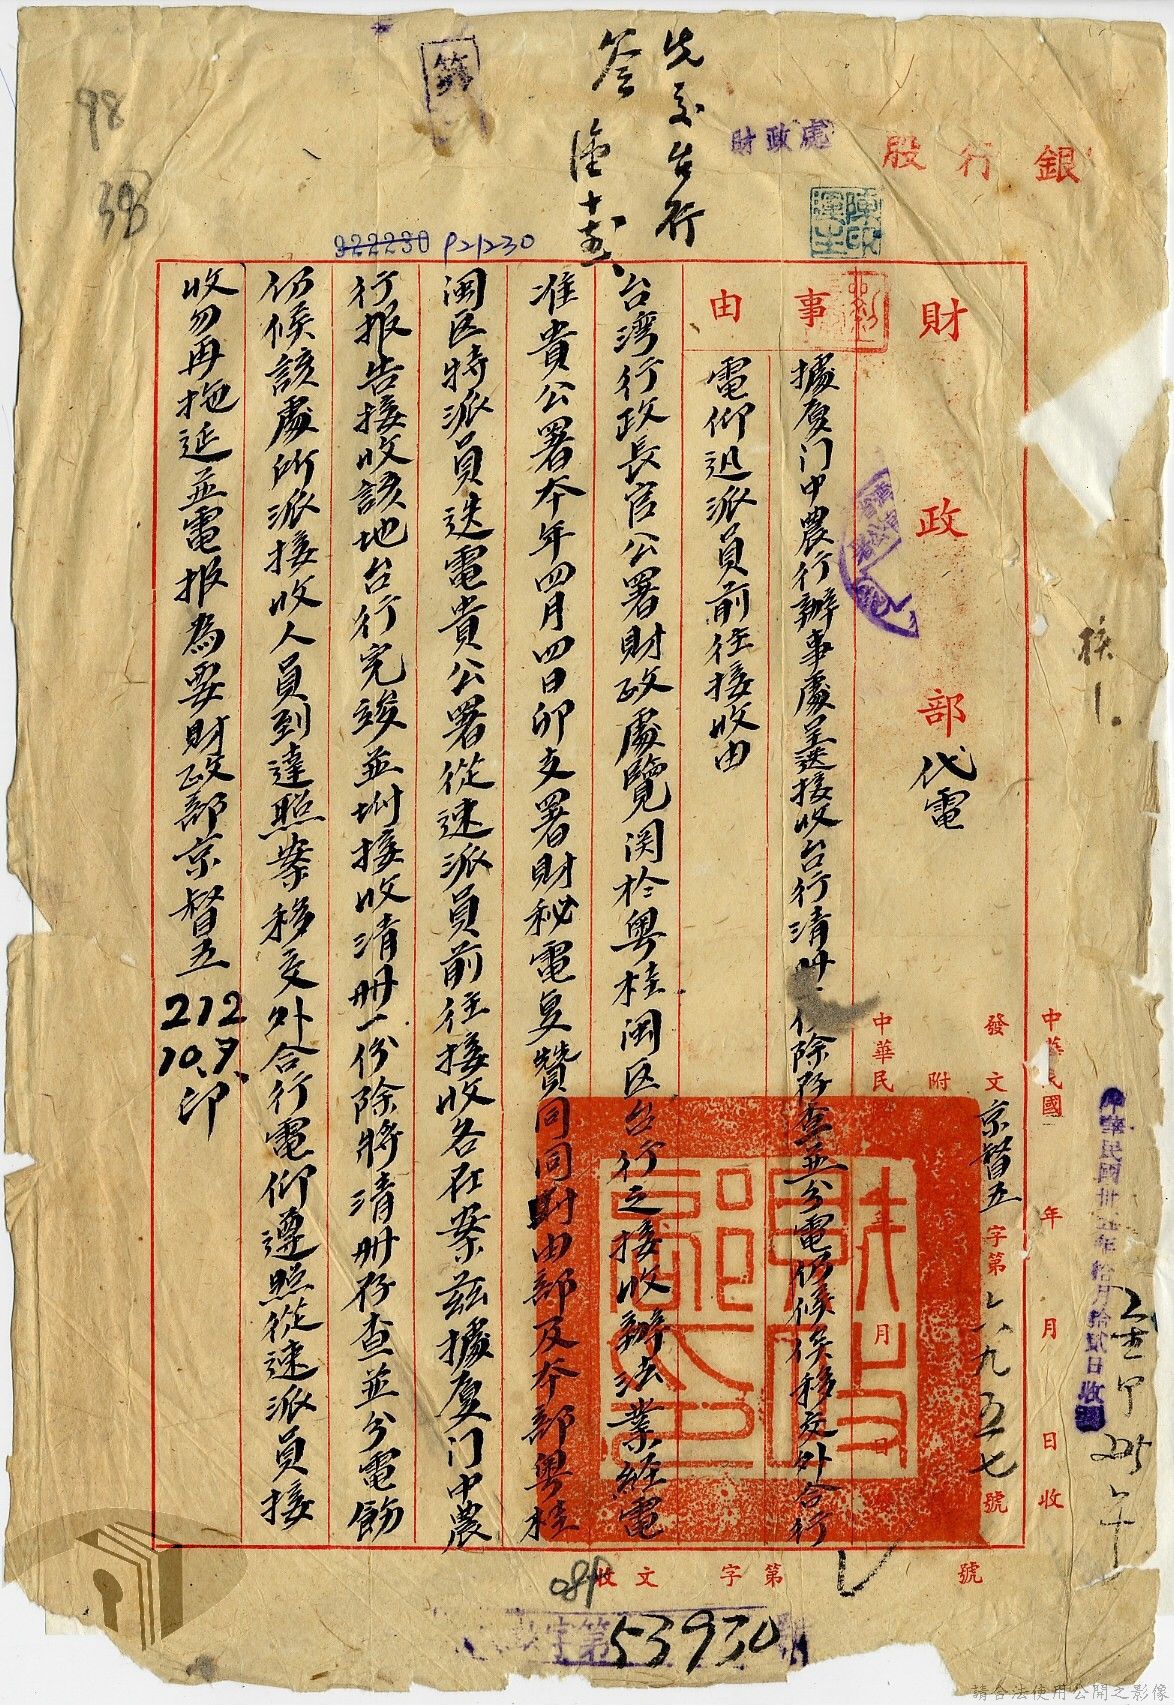 先交台行
簽
98
38
922230 P21230
財政處
銀行股
財政部代電
事由
據厦门中農行辦事處呈送接收台行清册
除存查並分電仍候俟移交外合行
電仰迅派員前往接收由
中華民國 年 月 日收
發文京督五字第六八九五七號
附
中華民
年
月
日
中華民國卅五年拾月拾貳日收
台湾行政長官公署財政處覽関於粤桂闽区台行之接收辦法業經電
准貴公署本年四月四日卯支署財秘電复贊同同財由部及本部粤桂
闽区特派員迭電貴公署從速派員前往接收各在案兹據厦门中農
行报告接收該地台行完竣並坿接收清册一份除將清册存查並分電飭
仍候該處所派接收人員到達照案移交外合行電仰遵照從速派員接
收勿再拖延並電报為要財政部京督五
272
10.7.印
收文 字第 號
089
53930
請合法使用公開之影像